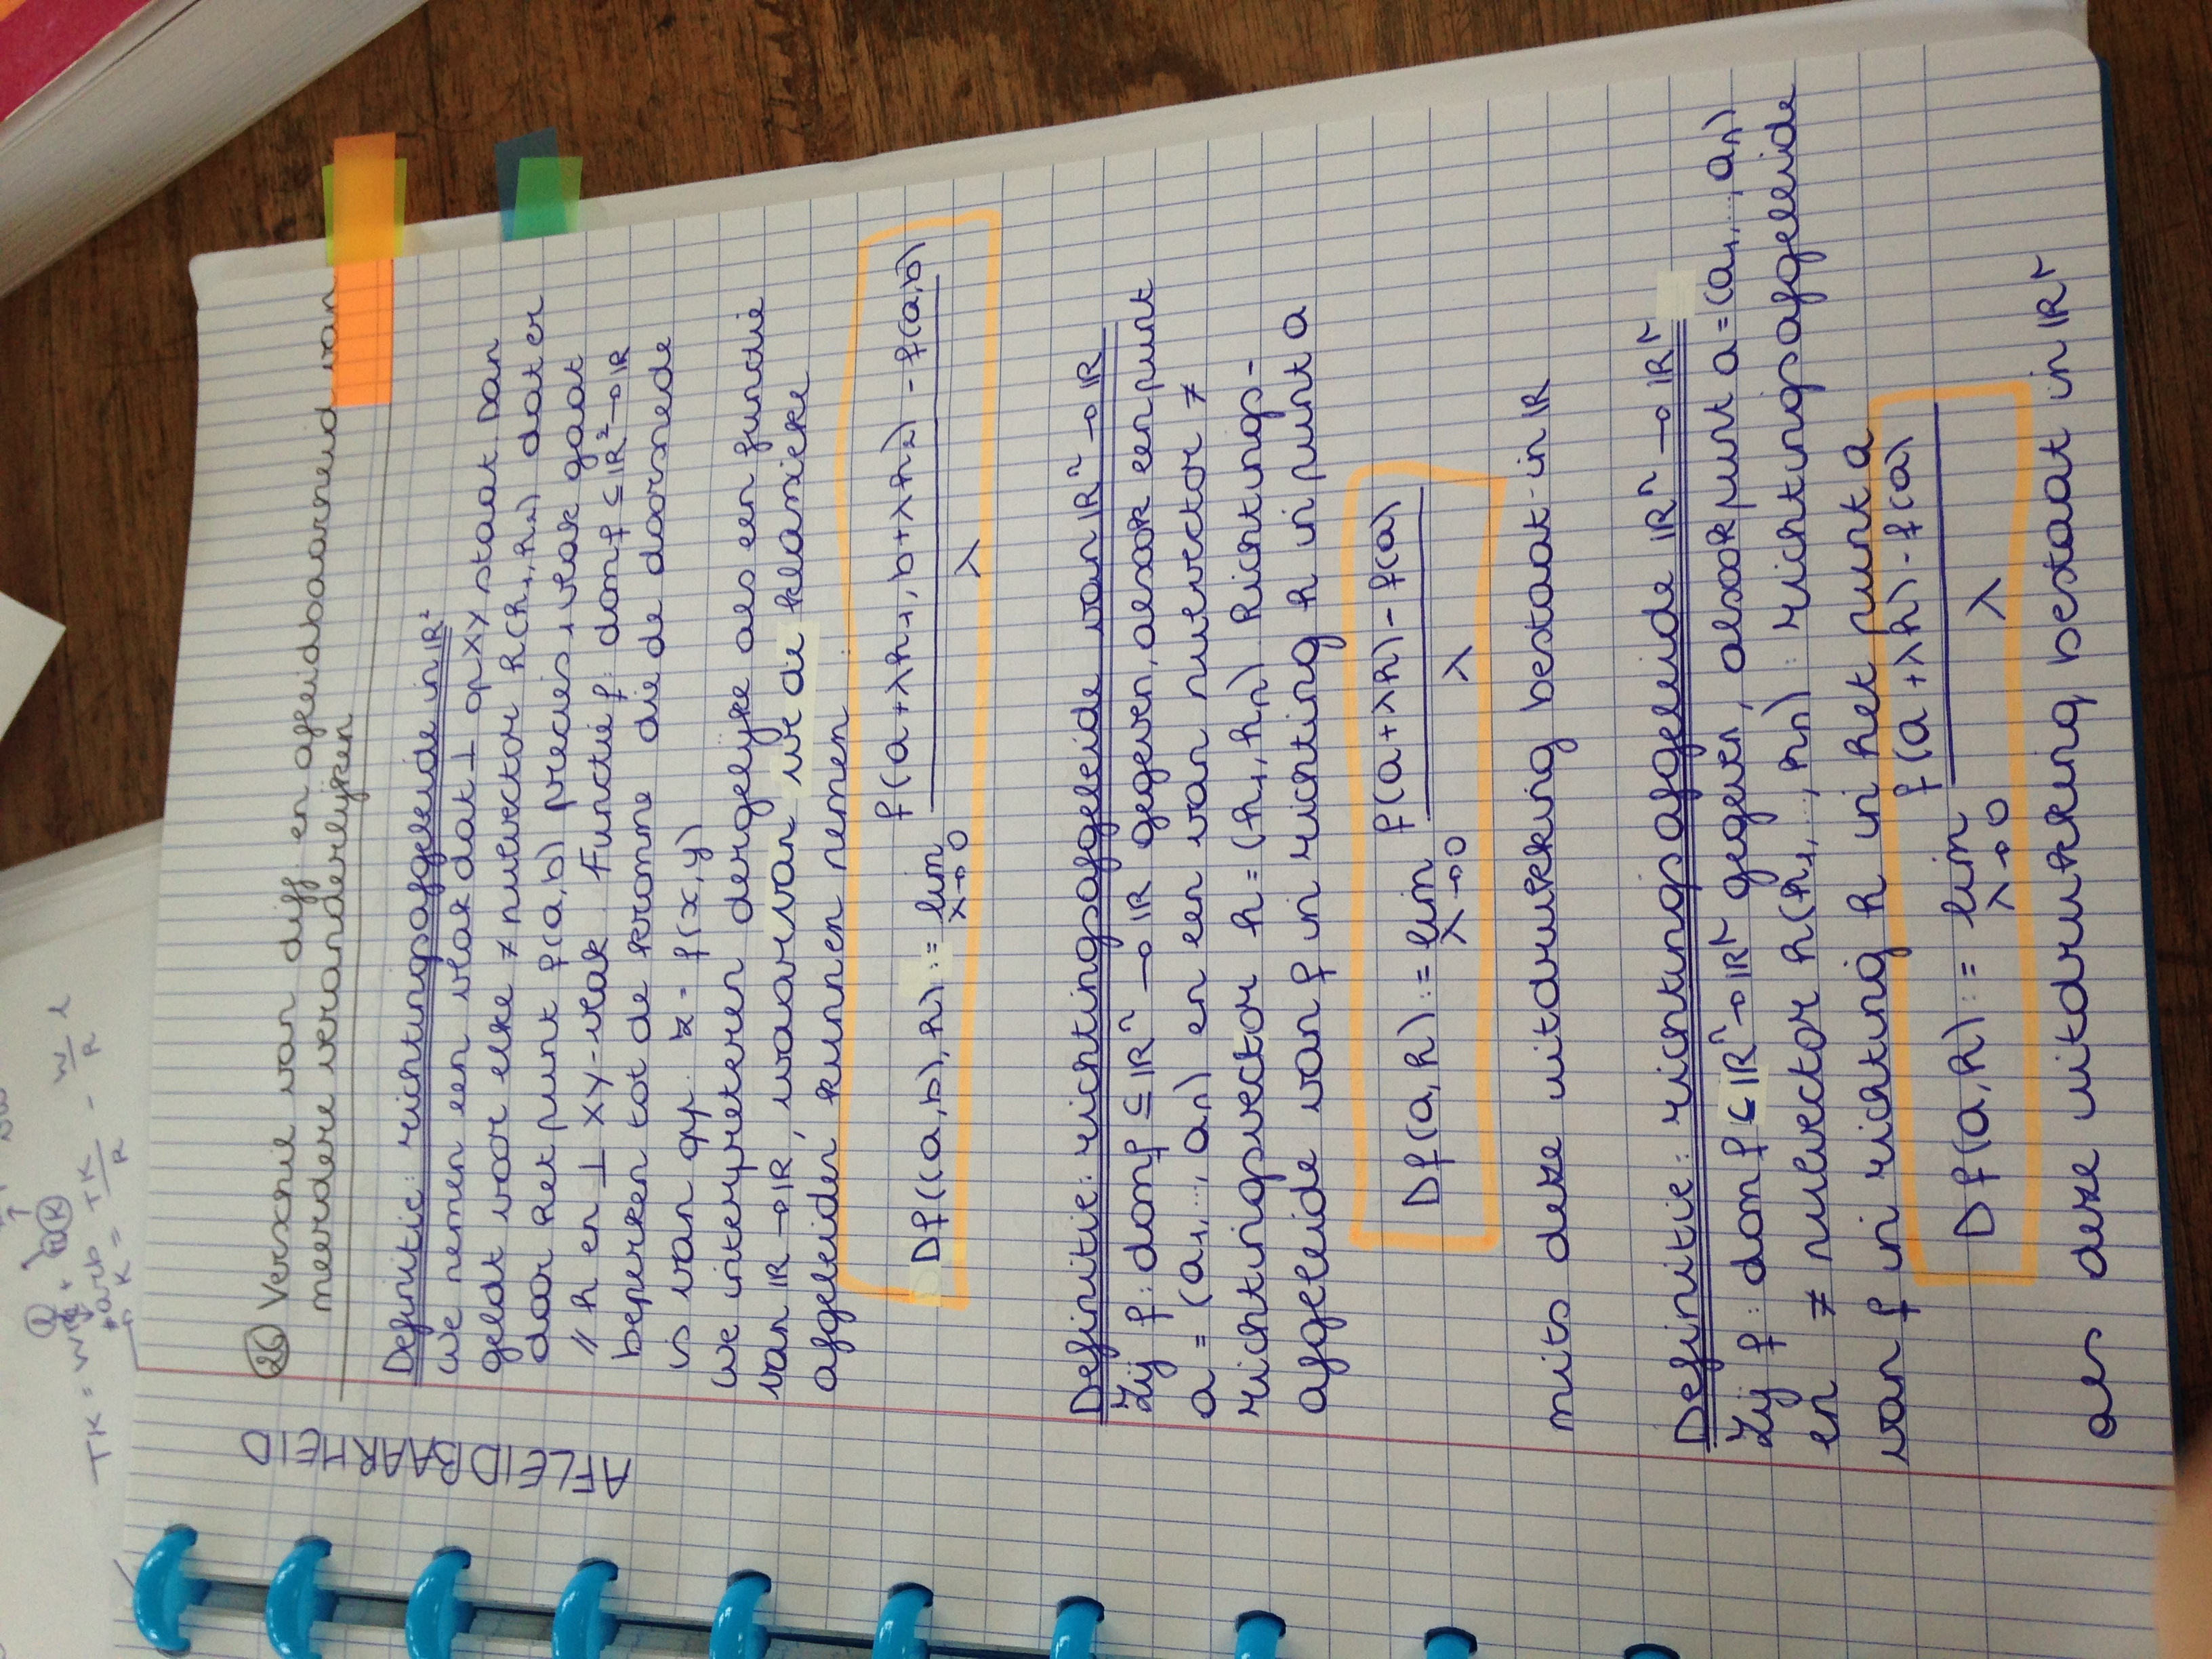 AFLEIDBAARHEID
26 Verschil van diff en afleidbaarheid van
meerdere veranderlijken
Definitie: richtingsafgeleide in ℝ²
we nemen een vlak dat ⊥ op XY staat. Dan
geldt voor elke ≠ nulvector h(h₁,h₂) dat er
door het punt f(a,b) precies 1 vlak gaat
// h en ⊥ XY-vlak. Functie f: dom f ⊆ ℝ² → ℝ
beperken tot de kromme die de doorsnede
is van gf: z = f(x,y)
we interpreteren dergelijke als een functie
van ℝ → ℝ, waarvan we de klassieke
afgeleiden kunnen nemen
Df((a,b),h) := lim λ→0 f(a+λh₁, b+λh₂) - f(a,b) / λ
Definitie: richtingsafgeleide van ℝⁿ → ℝ
Zij f: dom f ⊆ ℝⁿ → ℝ gegeven, alsook een punt
a = (a₁,...,aₙ) en een van nulvector ≠
richtingsvector h = (h₁,hₙ). Richtings-
afgeleide van f in richting h in punt a
Df(a,h) := lim λ→0 f(a+λh) - f(a) / λ
mits deze uitdrukking bestaat in ℝ
Definitie: richtingsafgeleide ℝⁿ → ℝʳ
Zij f: dom f ⊆ ℝⁿ → ℝʳ gegeven, alsook punt a = (a₁,...,aₙ)
en ≠ nulvector h(h₁,...,hₙ): richtingsafgeleide
van f in richting h in het punt a
Df(a,h) := lim λ→0 f(a+λh) - f(a) / λ
als deze uitdrukking bestaat in ℝʳ